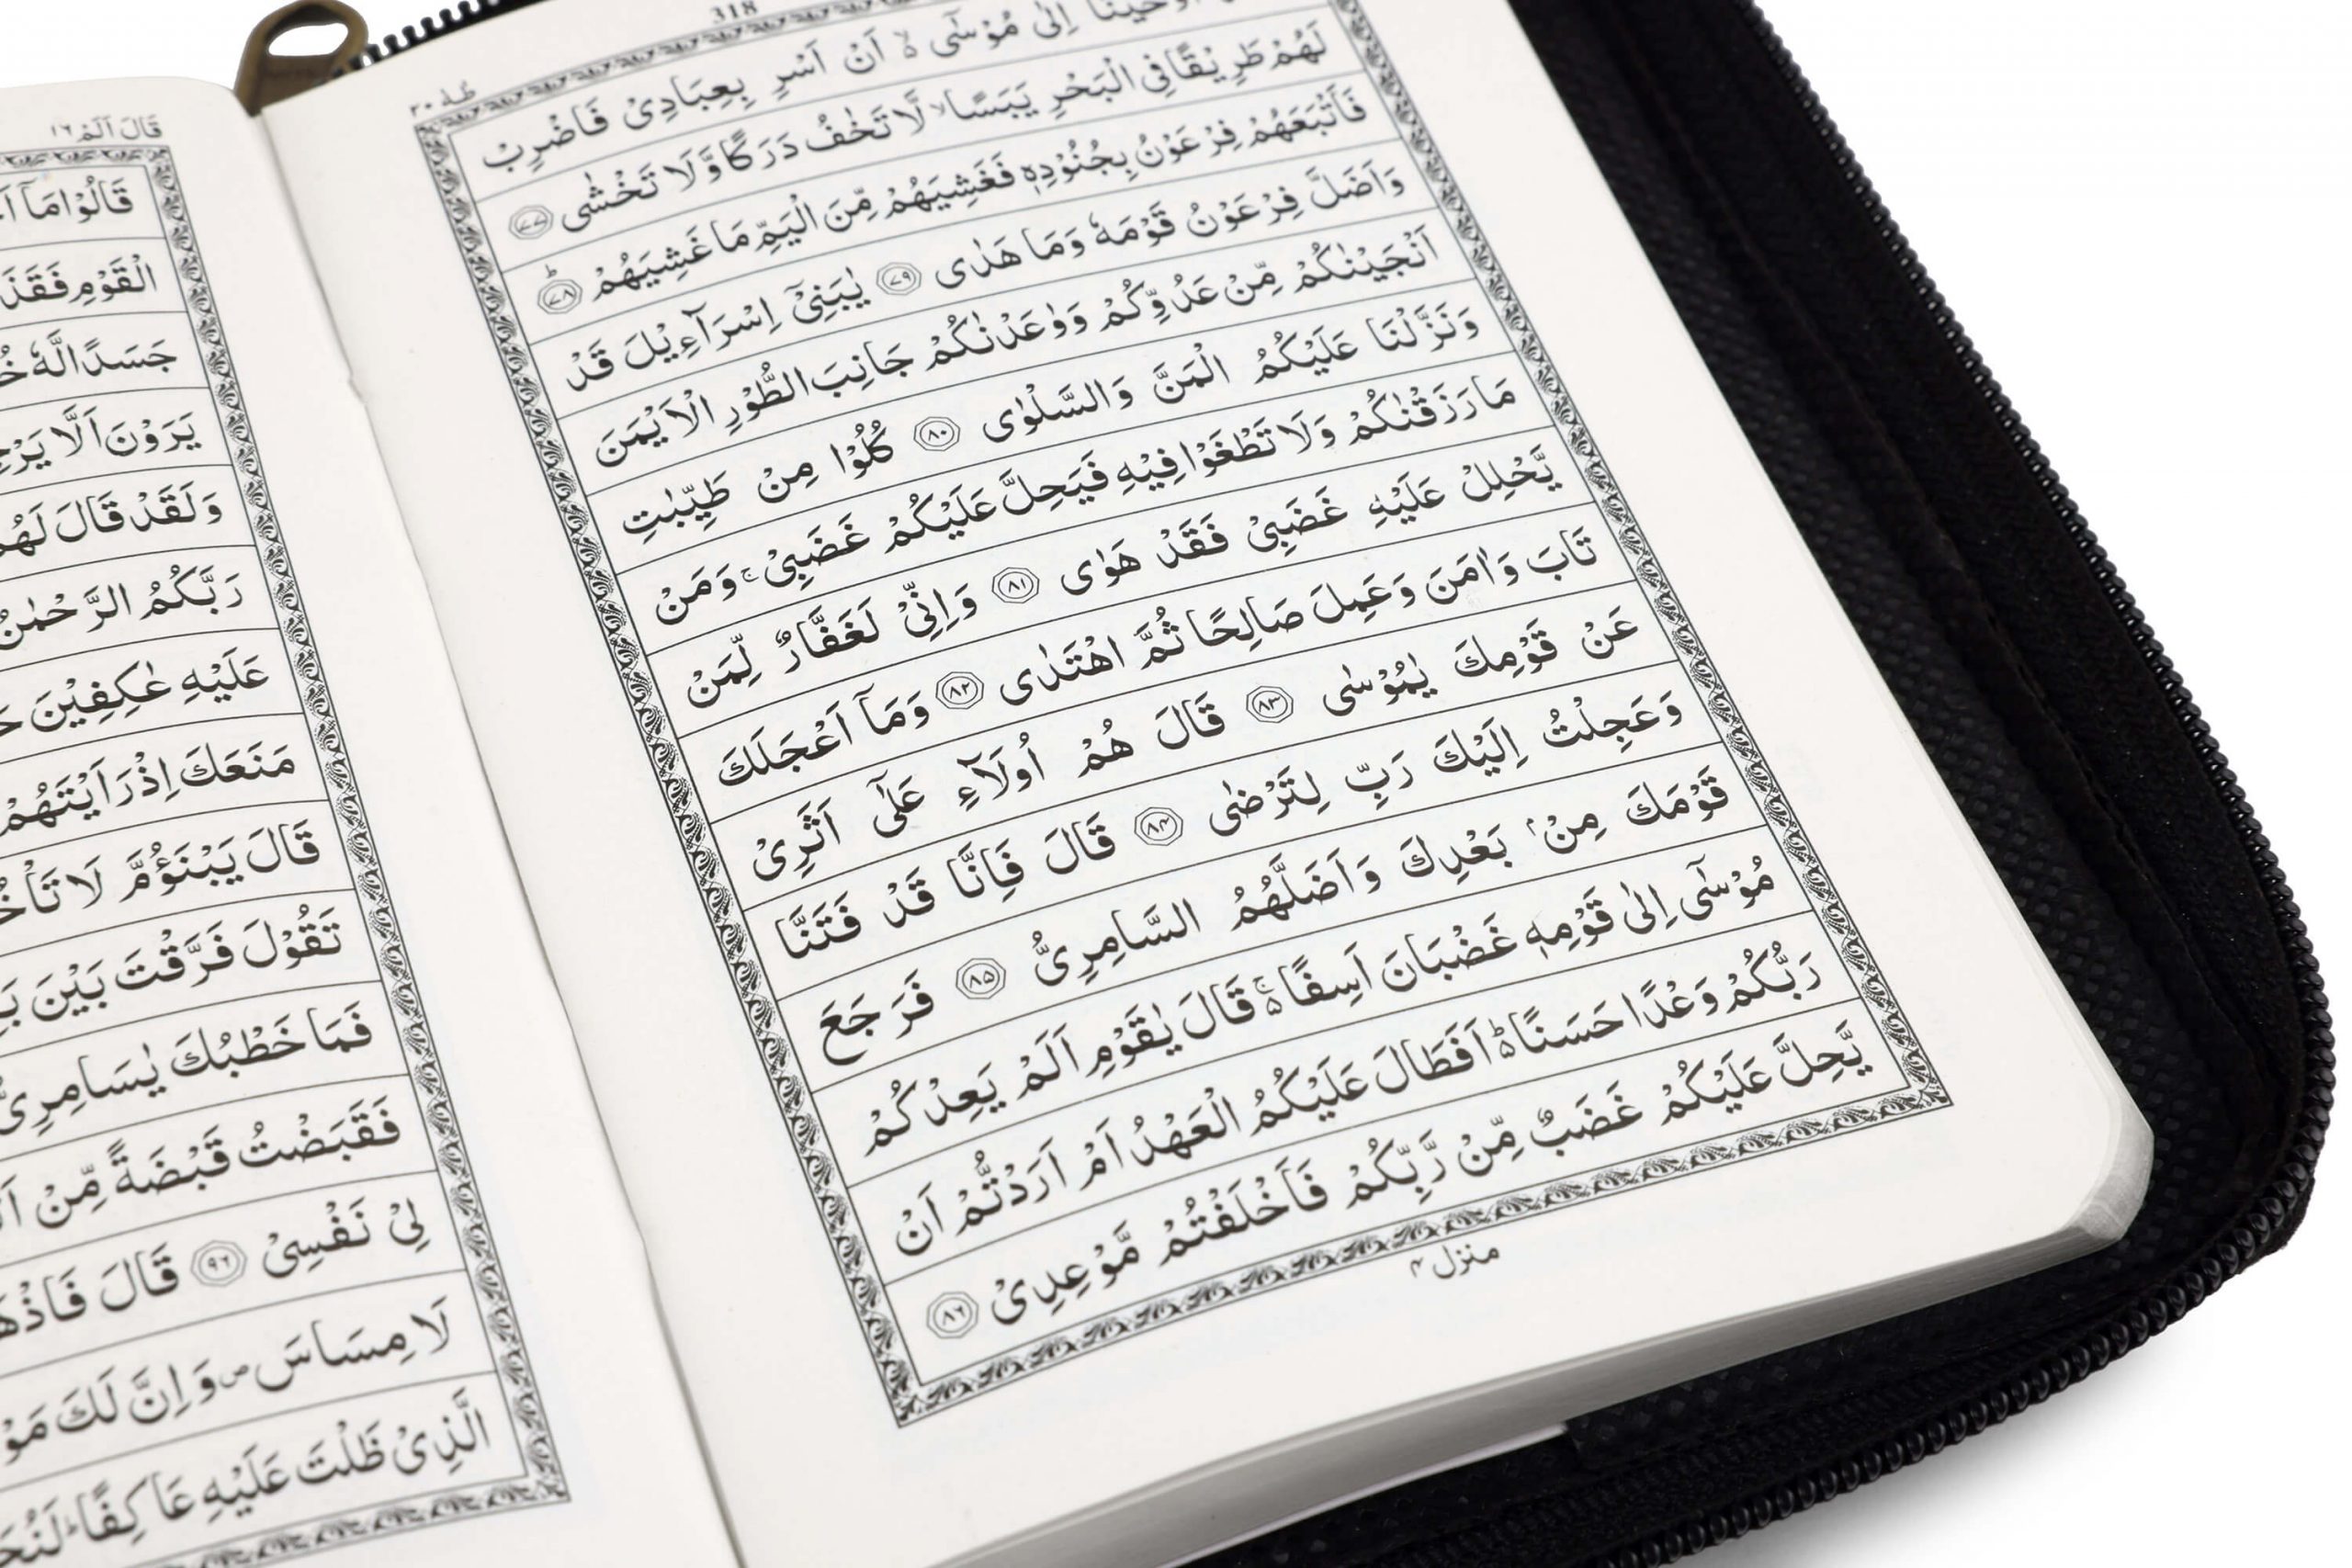 318
طٰهٰ ٢٠
اَوْحَيْنَآ اِلٰى مُوْسٰٓى ۙ۬ اَنْ اَسْرِ بِعِبَادِيْ فَاضْرِبْ
لَهُمْ طَرِيْقًا فِى الْبَحْرِ يَبَسًا ۙ لَّا تَخٰفُ دَرَكًا وَّلَا تَخْشٰى ۝٧٧
فَاَتْبَعَهُمْ فِرْعَوْنُ بِجُنُوْدِهٖ فَغَشِيَهُمْ مِّنَ الْيَمِّ مَا غَشِيَهُمْ ۝٧٨ؕ
وَاَضَلَّ فِرْعَوْنُ قَوْمَهٗ وَمَا هَدٰى ۝٧٩ يٰبَنِيْٓ اِسْرَآءِيْلَ قَدْ
اَنْجَيْنٰكُمْ مِّنْ عَدُوِّكُمْ وَوٰعَدْنٰكُمْ جَانِبَ الطُّوْرِ الْاَيْمَنَ
وَنَزَّلْنَا عَلَيْكُمُ الْمَنَّ وَالسَّلْوٰى ۝٨٠ كُلُوْا مِنْ طَيِّبٰتِ
مَا رَزَقْنٰكُمْ وَلَا تَطْغَوْا فِيْهِ فَيَحِلَّ عَلَيْكُمْ غَضَبِيْ ۚ وَمَنْ
يَّحْلِلْ عَلَيْهِ غَضَبِيْ فَقَدْ هَوٰى ۝٨١ وَاِنِّيْ لَغَفَّارٌ لِّمَنْ
تَابَ وَاٰمَنَ وَعَمِلَ صَالِحًا ثُمَّ اهْتَدٰى ۝٨٢ وَمَآ اَعْجَلَكَ
عَنْ قَوْمِكَ يٰمُوْسٰى ۝٨٣ قَالَ هُمْ اُولَآءِ عَلٰٓى اَثَرِيْ
وَعَجِلْتُ اِلَيْكَ رَبِّ لِتَرْضٰى ۝٨٤ قَالَ فَاِنَّا قَدْ فَتَنَّا
قَوْمَكَ مِنْۢ بَعْدِكَ وَاَضَلَّهُمُ السَّامِرِيُّ ۝٨٥ فَرَجَعَ
مُوْسٰٓى اِلٰى قَوْمِهٖ غَضْبَانَ اَسِفًا ۚ۬ قَالَ يٰقَوْمِ اَلَمْ يَعِدْكُمْ
رَبُّكُمْ وَعْدًا حَسَنًا ؕ۬ اَفَطَالَ عَلَيْكُمُ الْعَهْدُ اَمْ اَرَدْتُّمْ اَنْ
يَّحِلَّ عَلَيْكُمْ غَضَبٌ مِّنْ رَّبِّكُمْ فَاَخْلَفْتُمْ مَّوْعِدِيْ ۝٨٦
منزل ٤
قَالَ اَلَمْ ١٦
قَالُوْا مَآ
الْقَوْمِ
جَسَدًا لَّهٗ
يَرَوْنَ اَلَّا
وَلَقَدْ قَالَ
رَبَّكُمُ الرَّحْمٰنُ
عَلَيْهِ عٰكِفِيْنَ
مَنَعَكَ اِذْ رَاَيْتَهُمْ
قَالَ يَبْنَؤُمَّ لَا
تَقُوْلَ فَرَّقْتَ بَيْنَ
فَمَا خَطْبُكَ يٰسَامِرِيُّ
فَقَبَضْتُ قَبْضَةً مِّنْ
لِيْ نَفْسِيْ ۝٩٦ قَالَ
لَا مِسَاسَ ۪ وَاِنَّ لَكَ
الَّذِيْ ظَلْتَ عَلَيْهِ عَاكِفًا ؕ